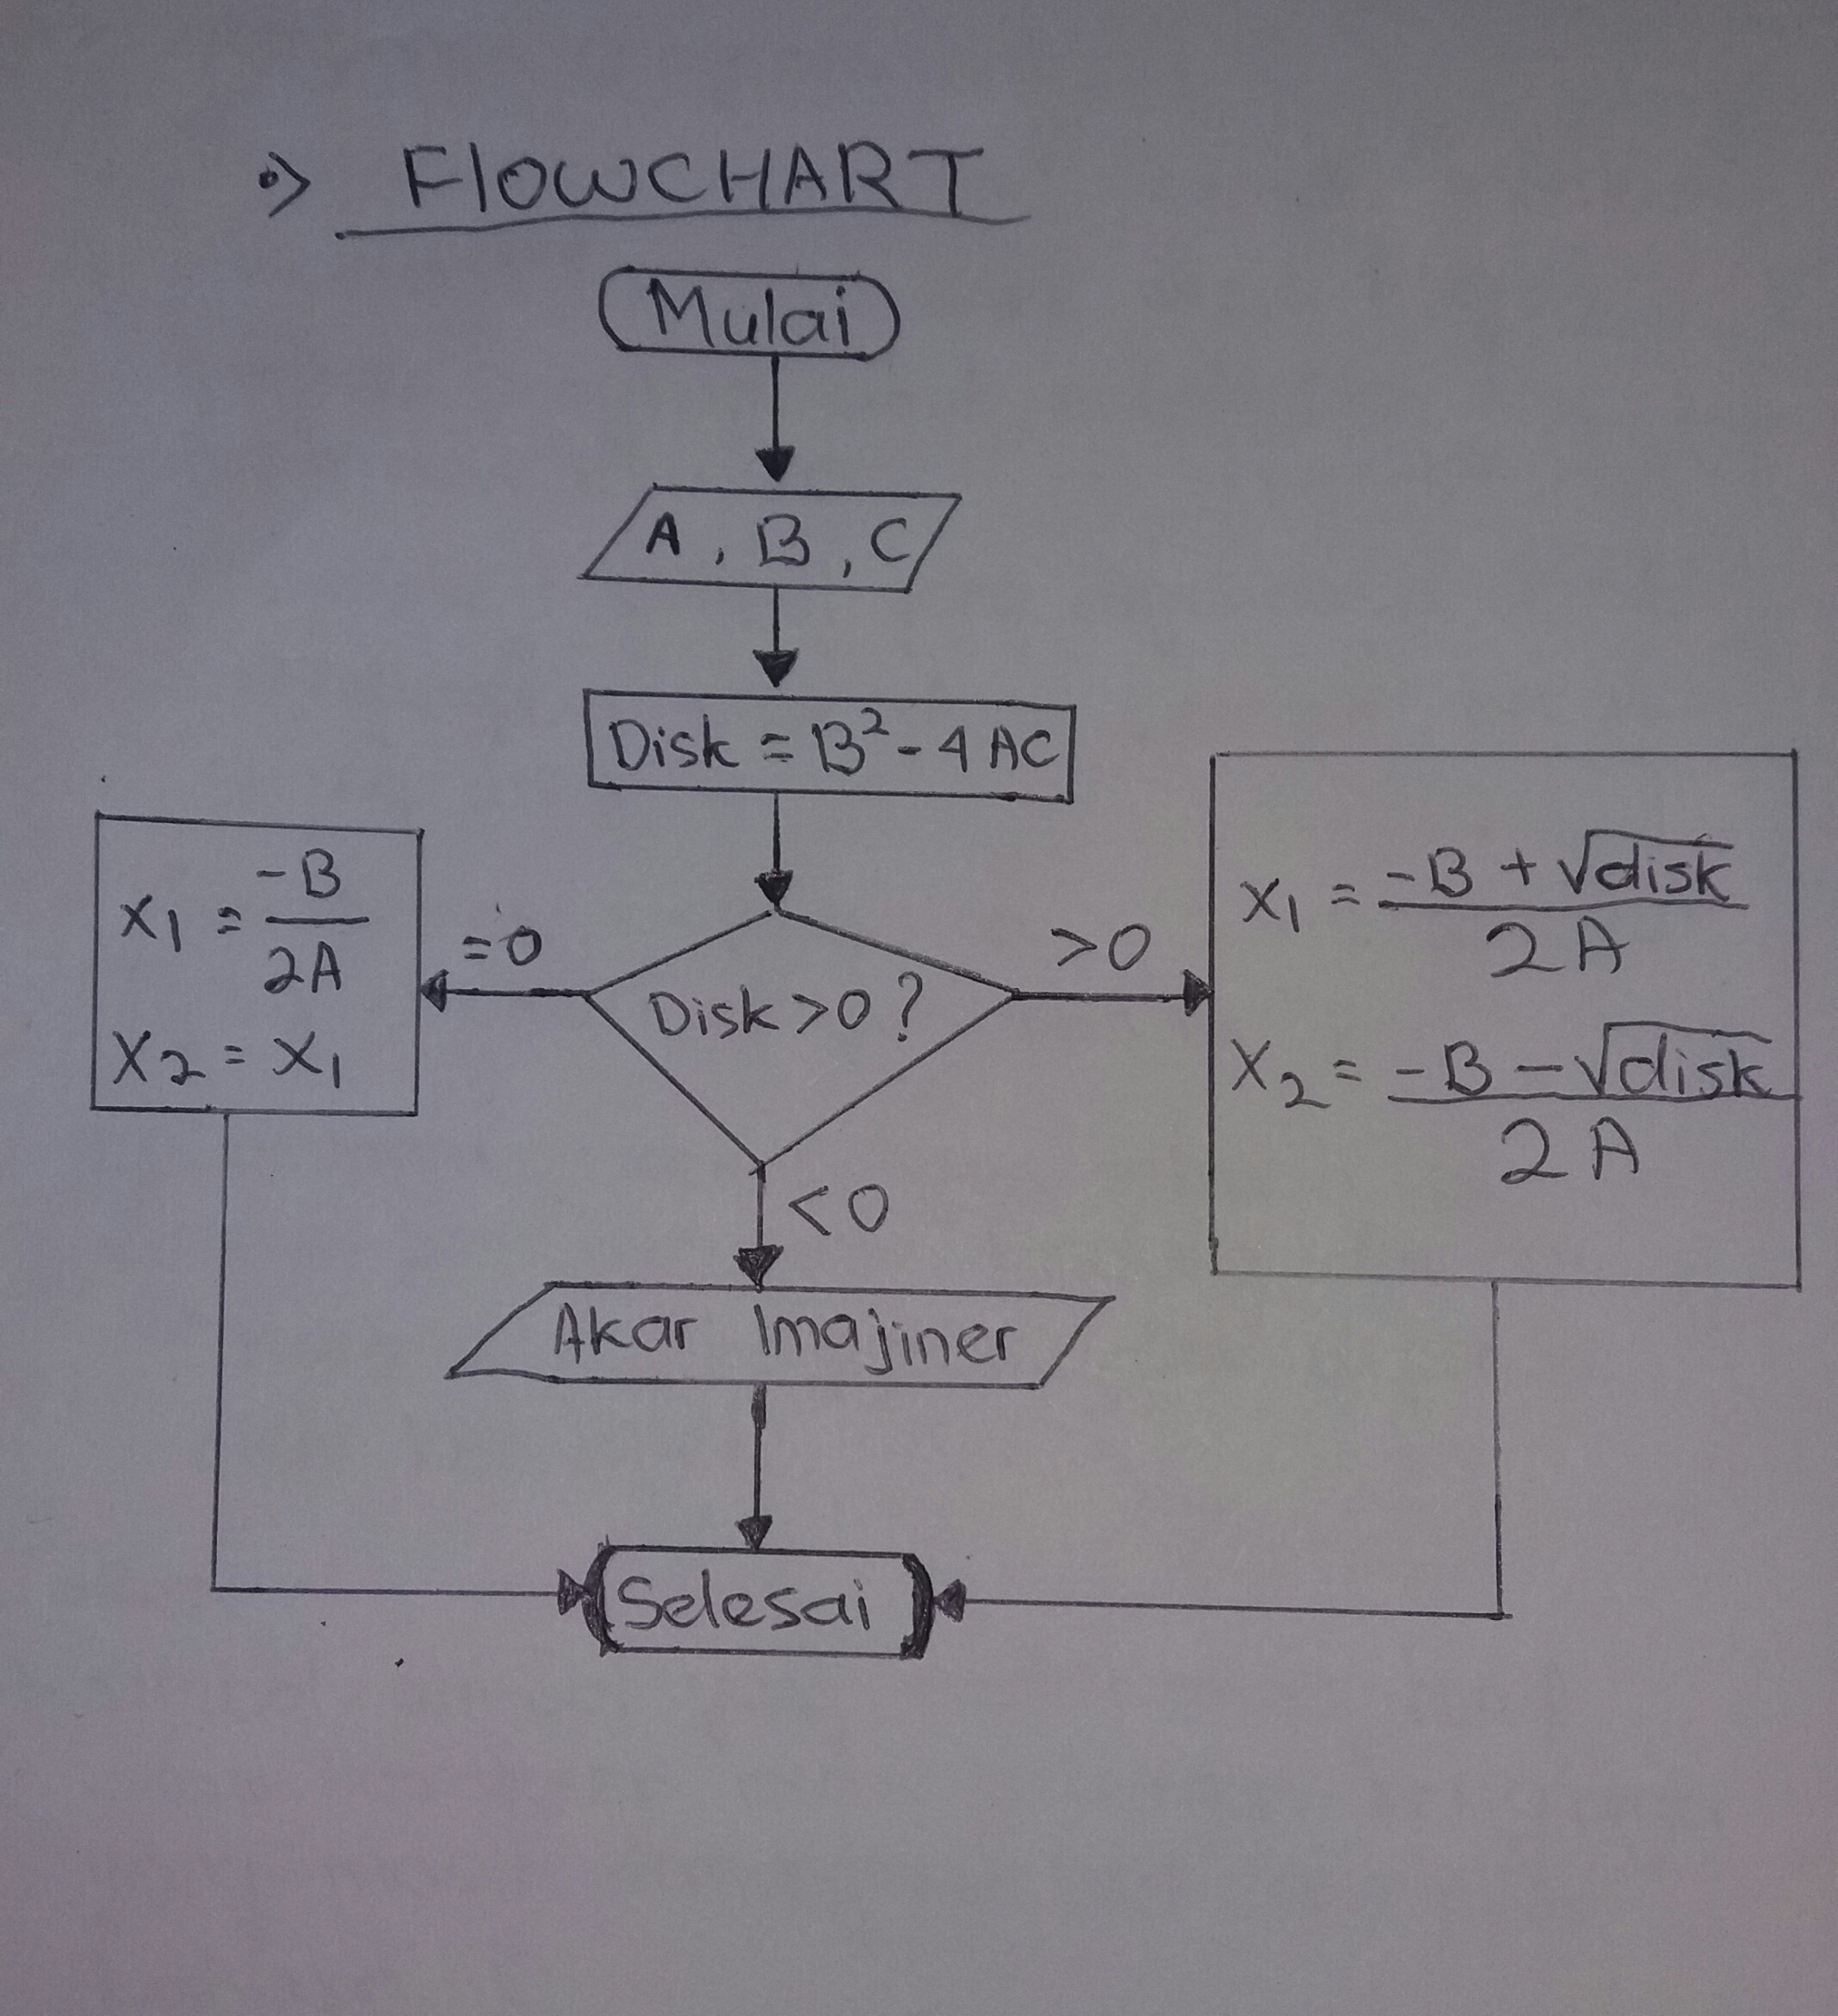 •> FlOWCHART
Mulai
A, B, C
Disk = B² - 4 AC
Disk > 0 ?
= 0
X₁ = -B / 2A
X₂ = X₁
> 0
X₁ = -B + √disk / 2A
X₂ = -B - √disk / 2A
< 0
Akar Imajiner
Selesai